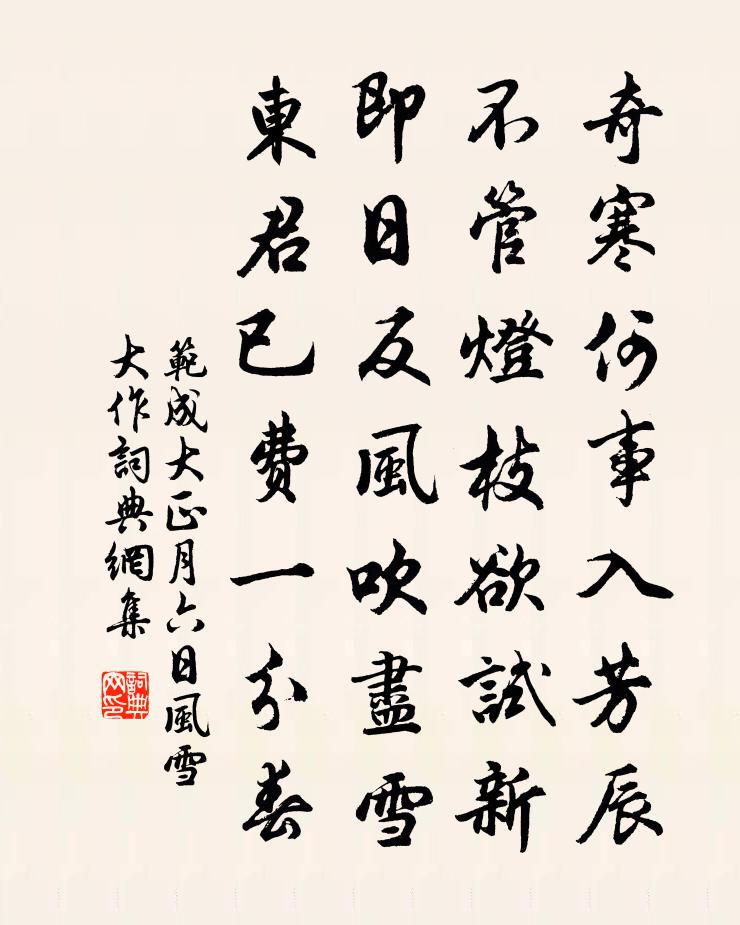 奇寒何事入芳辰
不管燈枝欲試新
即日反風吹盡雪
東君已費一分春
範成大正月六日風雪
大作詞典網集
詞典
网印